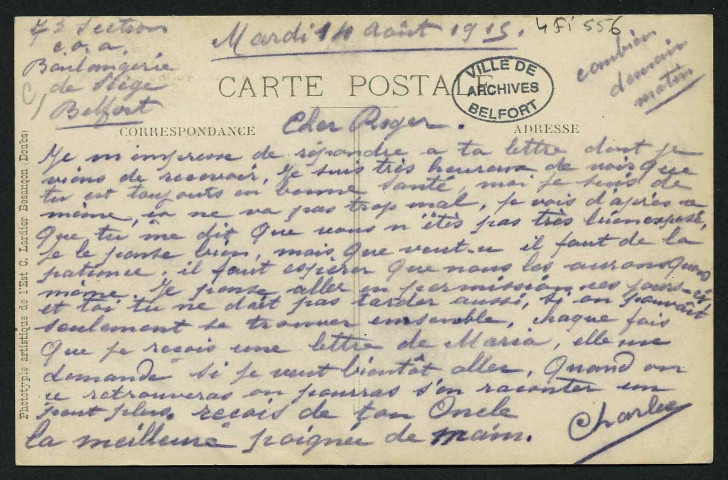 7e Section
c.o.a.
Boulangerie
de Siège
Belfort
Mardi 14 Août 1915.
4 Fi 556
combien
demain
matin
CARTE POSTALE
VILLE DE
ARCHIVES
BELFORT
CORRESPONDANCE
ADRESSE
Cher Roger.
Je m'empresse de répondre a ta lettre dont je
viens de recevoir, Je suis très heureux de voir que
tu est toujours en bonne santé, moi je suis de
même, ça ne va pas trop mal, je vois d'après ce
que tu me dit que vous n'êtes pas très bien exposé,
je le pense bien, mais que veut-u il faut de la
patience, il faut espérer que nous les aurons quand
même. Je pense aller en permission ces jours-ci
et toi tu ne doit pas tarder aussi, si on pouvait
seulement se trouver ensemble, chaque fois
que je reçois une lettre de Maria, elle me
demande si je veut bientôt aller, Quand on
ce retrouveras on pourras s'en raconter un
peut plus. reçois de ton Oncle
la meilleure poignée de main. Charles
Phototypie artistique de l'Est C. Lardier Besançon (Doubs)